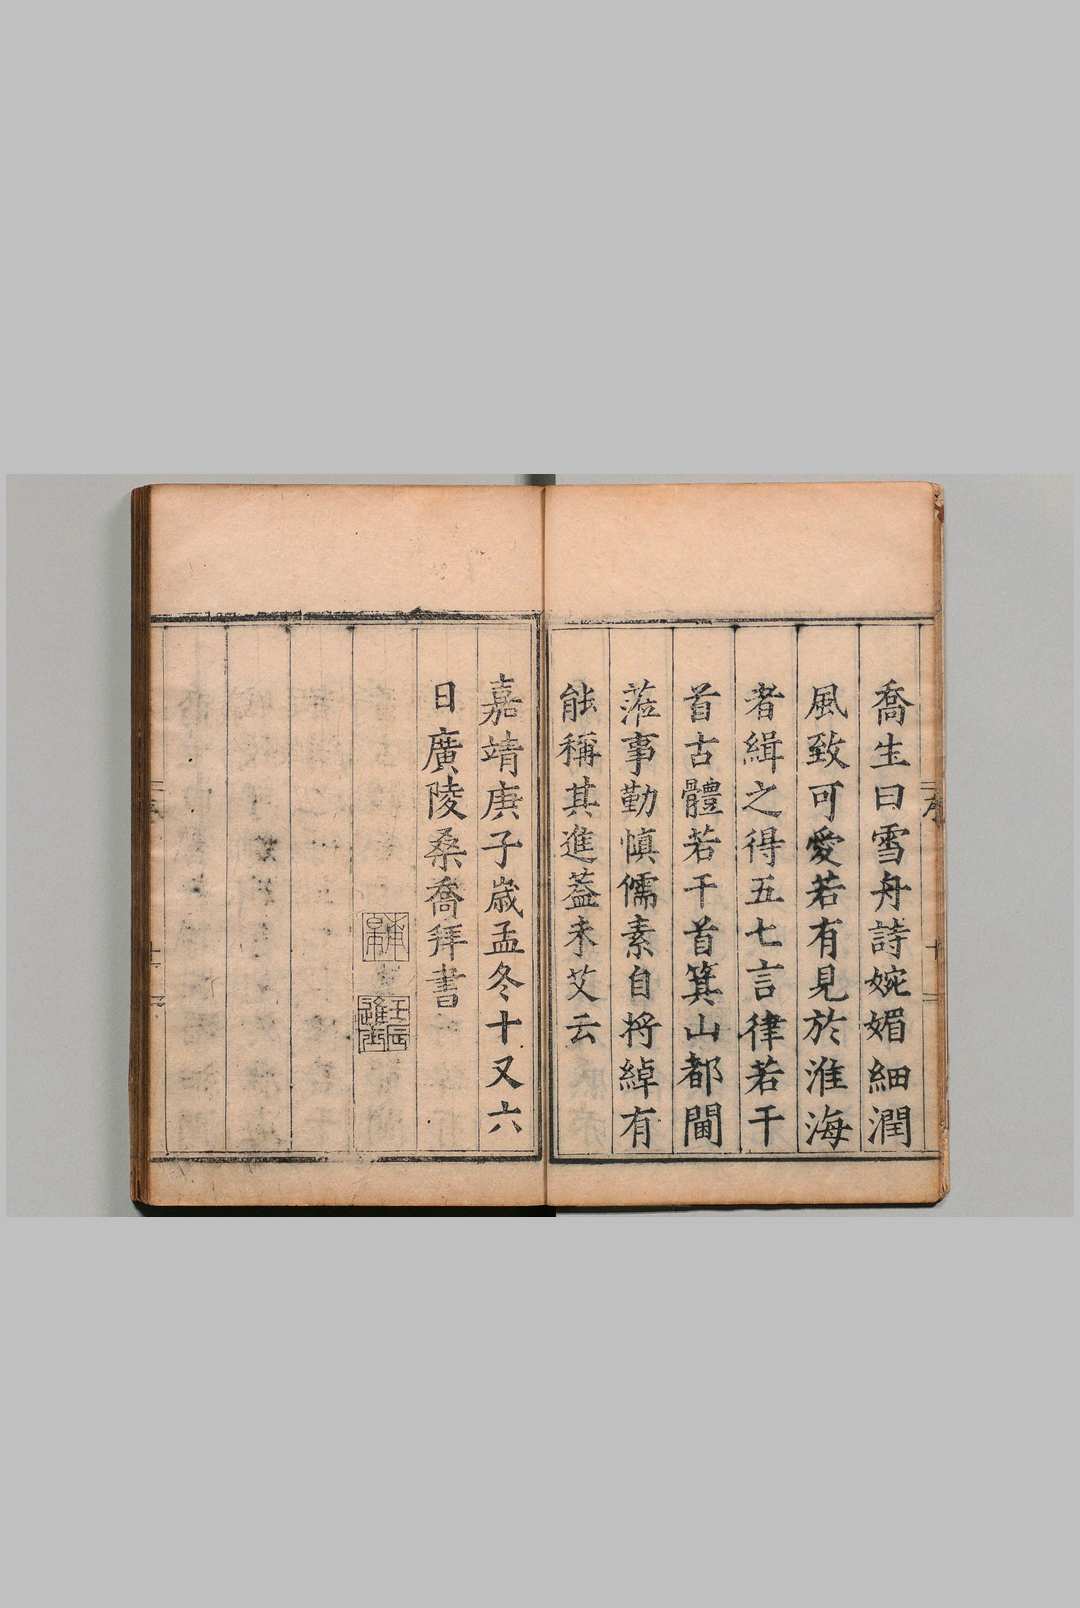 喬生曰雪舟詩婉媚細潤
風致可愛若有見於淮海
者緝之得五七言律若干
首古體若干首箕山都閫
蒞事勤慎儒素自將綽有
能稱其進葢未艾云
嘉靖庚子嵗孟冬十又六
日廣陵桑喬拜書
壬辰進士